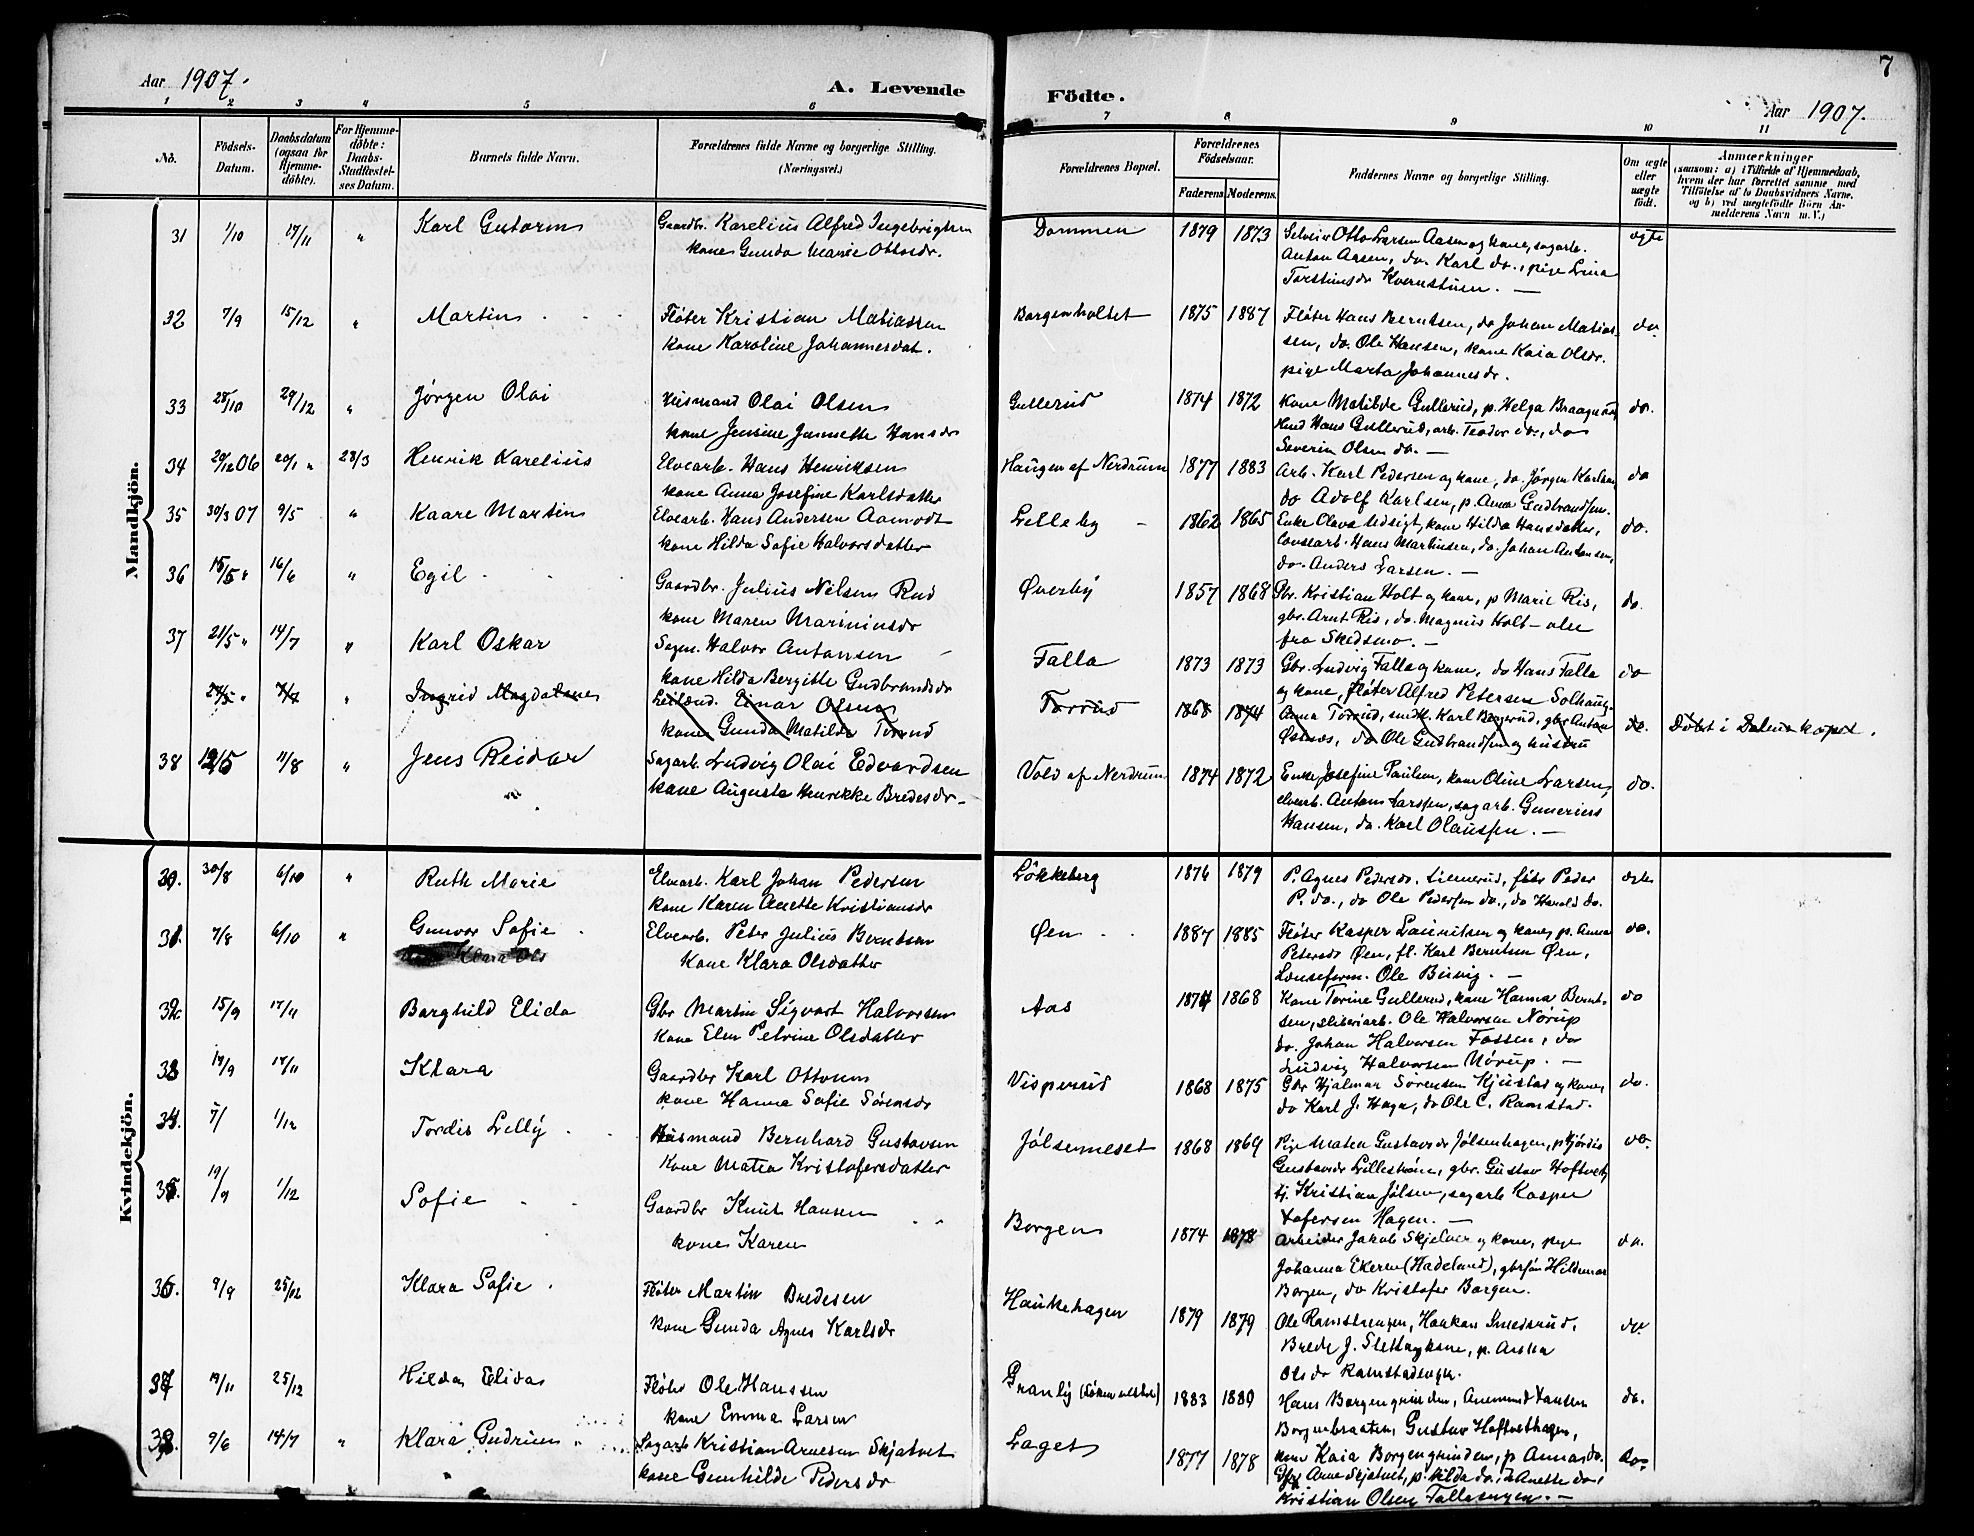 Aar 1907.
A. Levende Födte.
7
Aar 1907.
1 2 3 4 5 6 7 8 9 10 11
No. Födsels-Datum. Daabsdatum (ogsaa for Hjemmedöbte). For Hjemmedöbte: Daabs-Stadfæstelses Datum. Barnets fulde Navn. Forældrenes fulde Navne og borgerlige Stilling. (Næringsvei.) Forældrenes Bopæl. Forældrenes Födselsaar. Faderens Moderens. Faddernes Navne og borgerlige Stilling. Om ægte eller uægte födt. Anmærkninger (saasom: a) i Tilfælde af Hjemmedaab, hvem der har forrettet samme, med Tilföielse af to Daabsvidners Navne, og b) ved uægtefödte Börn Anmelderens Navn m. V.)
Mandkjön.
31 1/10 17/11 " Karl Gutorm Gaardbr. Karelius Alfred Ingebrigtsen Dammen 1879 1873 Selveier Otto Larsen Aasen og kone, sagarb. ægte
kone Gunda Marie Ottosdr. Anton Aasen, do. Karl do., pige Lina
Torstinsdr Kvernstuen. —
32 7/9 15/12 " Martin Fløter Kristian Matiassen Borgenholtet 1875 1887 Fløter Hans Berntsen, do Johan Matias- do.
kone Karoline Johannesdat. sen, do. Ole Hansen, kone Kaia Olsdr.
pige Marta Johannesdr.
33 28/10 29/12 " Jørgen Olai Husmand Olai Olsen Gullerud 1874 1872 Kone Matilde Gullerud, p. Helga Braagaas do.
kone Jensine Jannette Hansdr Hmd Hans Gullerud, arb. Teodor do., do
Severin Olsen do. —
34 29/12 06 20/1 " 28/3 Henrik Karelius Elvearb. Hans Henriksen Haugen af Nerdrum 1877 1883 Arb. Karl Pedersen og kone, do. Jørgen Karlsen do
kone Anna Josefine Karlsdatter do Adolf Karlsen, p. Anna Gudbrandsen.
35 30/3 07 9/5 " Kaare Martin Elvearb. Hans Andersen Aamodt Lilleby 1862 1865 Enke Olava Udsigt, kone Hilda Hansdatter, do.
kone Hilda Sofie Halvorsdatter Hans Martinsen, do. Johan Antonsen,
do. Anders Larsen. —
36 15/5 " 16/6 " Egil Gaardbr. Julius Nilsen Rud Øverby 1857 1868 Gbr. Kristian Holt og kone, p Marie Ris, do.
kone Maren Martinsdr gbr. Arnt Ris, do. Magnus Holt – alle
fra Skedsmo. —
37 21/5 " 14/7 " Karl Oskar Sagm. Halvor Antonsen Falla 1873 1873 Gbr. Ludvig Falla og kone, do Hans Falla do
kone Hilda Bergitte Gudbrandsdr og kone, fløter Alfred Petersen Solhaug
24/5 " 7/7 " Ingrid Magdalene Einar Olsen Torrud 1868 1874 Anna Torrud, smdk. Karl Bøgerud, gbr Anton do. Døbt i Dalens kapel.
kone Gunda Matilde Torrud Østnes, do Ole Gudbrandsen og hustru
38 12/5 11/8 " Jens Reidar Sagarb. Ludvig Olai Edvardsen Vold af Nerdrum 1874 1872 Enke Josefine Paulsen, kone Oline Larsen, do.
kone Augusta Henrikke Bredesdr elvearb. Anton Larssen, sagarb. Gunerius
Hansen, do. Karl Olaussen. —
Kvindekjön.
30. 30/8 6/10 " Ruth Marie Elvearb. Karl Johan Pedersen Løkkeberg 1876 1879 P. Agnes Pedersdr. fløter Peder ægte
kone Karen Anette Kristiansdr P. do., do Ole Pedersen do., do Harald do.
31. 7/8 6/10 " Gunvor Sofie Elvearb. Peter Julius Berntsen Øen 1887 1885 Fløter Kasper Lauritsen og kone, p. Anna do.
Klara Ols Kone Klara Olsdatter Petersdr Øen, fl. Karl Berntsen Øen,
Lenseform. Ole Bervig. —
32. 15/9 17/11 Borghild Elida Gbr Martin Sigvart Halvorsen Aas 1874 1868 Kone Torine Gullerud, kone Hanna Bernt- do
Kone Elen Petrine Olsdatter sen, sliberiarb. Ole Halvorsen Nørup
do. Johan Halvorsen Fossen, do
Ludvig Halvorsen Nørup. —
33 14/9 17/11 Klara Gaardbr Karl Ottosen Visperud 1868 1875 Gbr Hjalmar Sørensen Kjustad og kone, do.
kone Hanna Sofie Sørensdr do Karl J. Haga, do Ole C. Ramstad.
34. 7/ 1/12 Tordis Lilly Husmand Bernhard Gustavsen Jølsenneset 1868 1869 Pige Matea Gustavsdr Jølsenhagen, p Hjørdis do.
Kone Matea Kristofersdatter Gustavsdr Lillestrøm, gbr. Gustav Hoftvet,
Kristian Jølsen, sagarb Kasper
Hagen. —
35. 19/9 1/12 Sofie Gaardbr Knut Hansen Borgen 1874 1878 Arbeider Jakob Skjelver og kone, pige do.
kone Karen Johanna Ekeren (Hadeland), gbrsøn Hildemar
Borgen, do Kristofer Borgen.
36. 9/9 25/12 Klara Sofie Fløter Martin Bredesen Haukehagen 1879 1879 Ole Ramstadengen, Haakon Smedsrud, do
kone Gunda Agnes Karlsdr Brede J. Sletta og kone, p. Anna
Olsdr Ramstadengen.
37 19/11 25/12 Hilda Elida Fløter Ole Hanssen Granly 1883 1880 Hans Borgengrinden, Anemund Hansen do.
kone Emma Larsen Borgenbraaten, Gustav Hoftvethagen,
kone Kaia Borgengrinden, p Anna do.
38. 9/6 14/7 " Klara Gudrun Sagarb Kristian Arnesen Skjatvet Laget 1877 1878 Gbr Arne Skjatvet, p. Hilda do., do Anette do, do.
kone Gunhilde Pedersdr Kristian Olsen Fallasengen. —